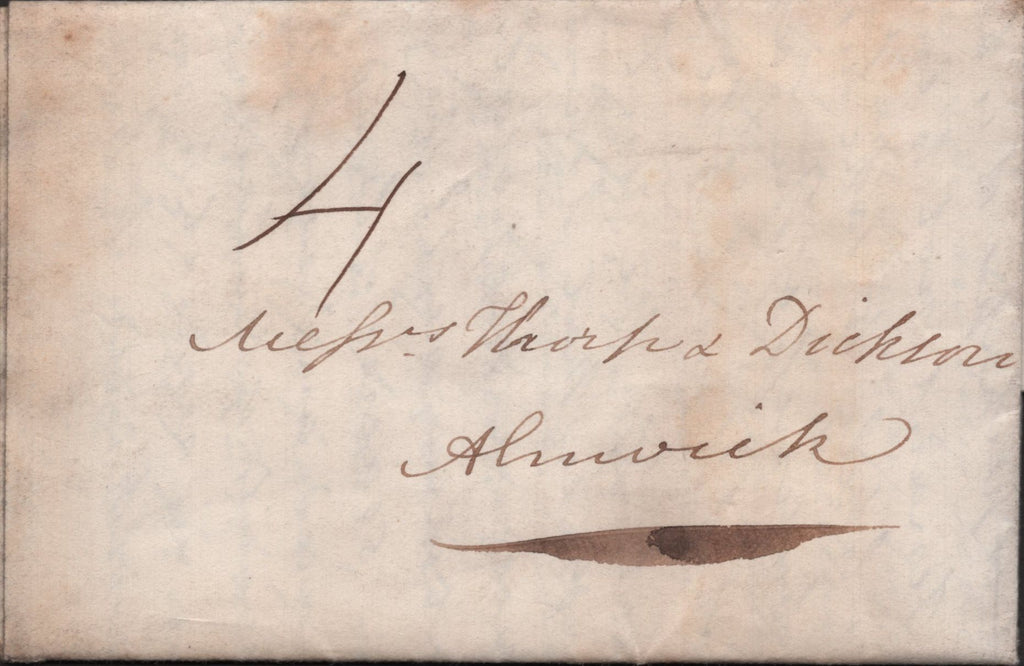 4
Messrs Thorp & Dickson
Alnwick